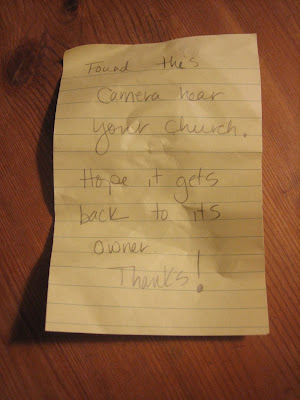 Found this
Camera near
your church.
Hope it gets
back to its
owner.
Thanks!